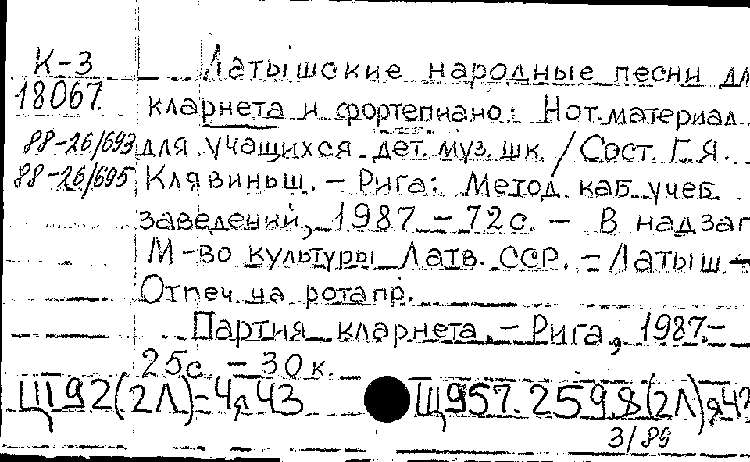 К-3
18067
88-26/693
88-26/695
Латышские народные песни дл
кларнета и фортепиано: Нот. материал
для учащихся дет. муз. шк. / Сост. Г.Я.
Клявиньш. – Рига: Метод. каб. учеб.
заведений, 1987 – 72 с. – В надзаг
М-во культуры Латв. ССР. – Латыш –
Отпеч. на ротапр.
Партия кларнета. – Рига, 1987. –
25 с. – 30 к.
Щ957.2598(2Л)я43
3/89